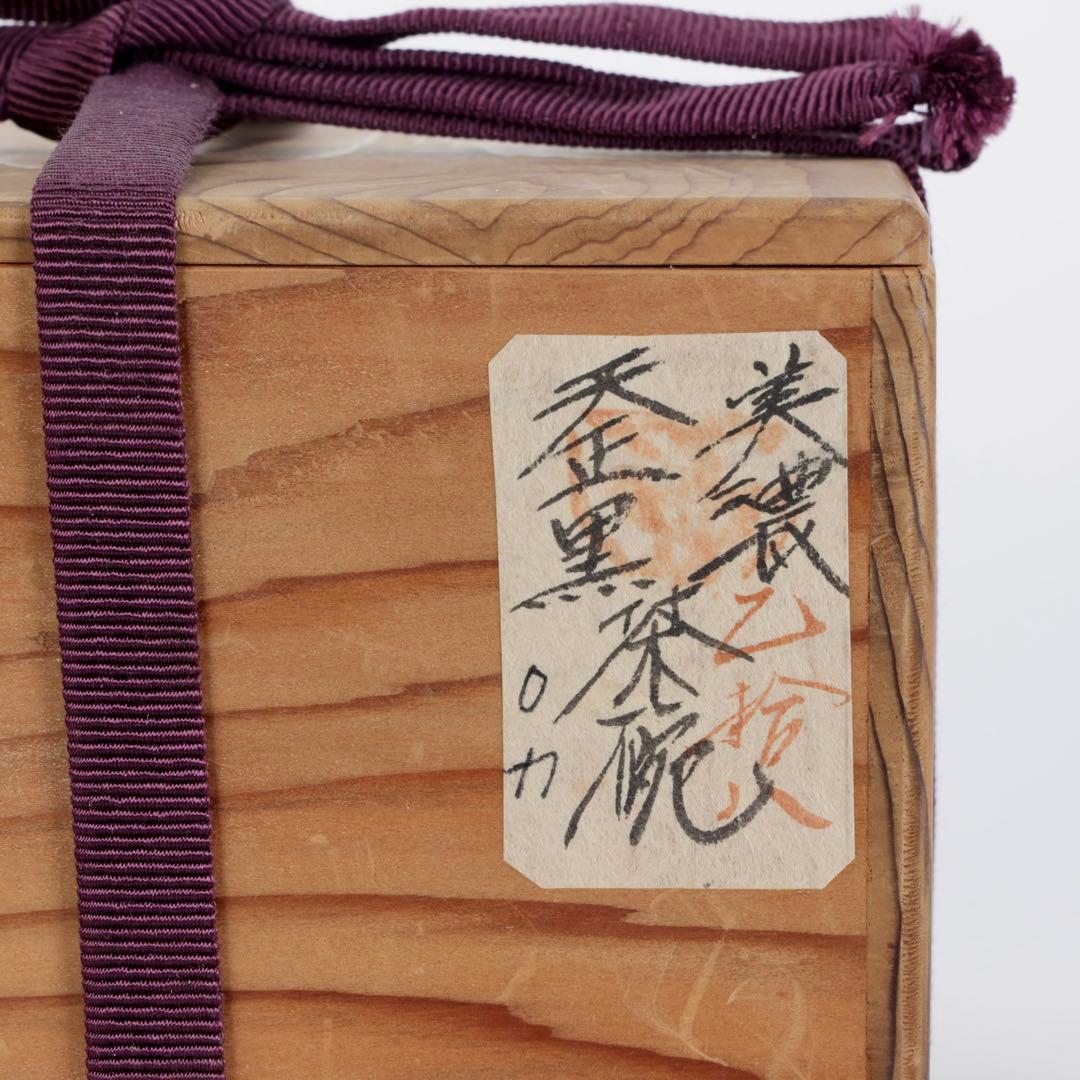 美濃
天正黒
茶碗
乙拾八